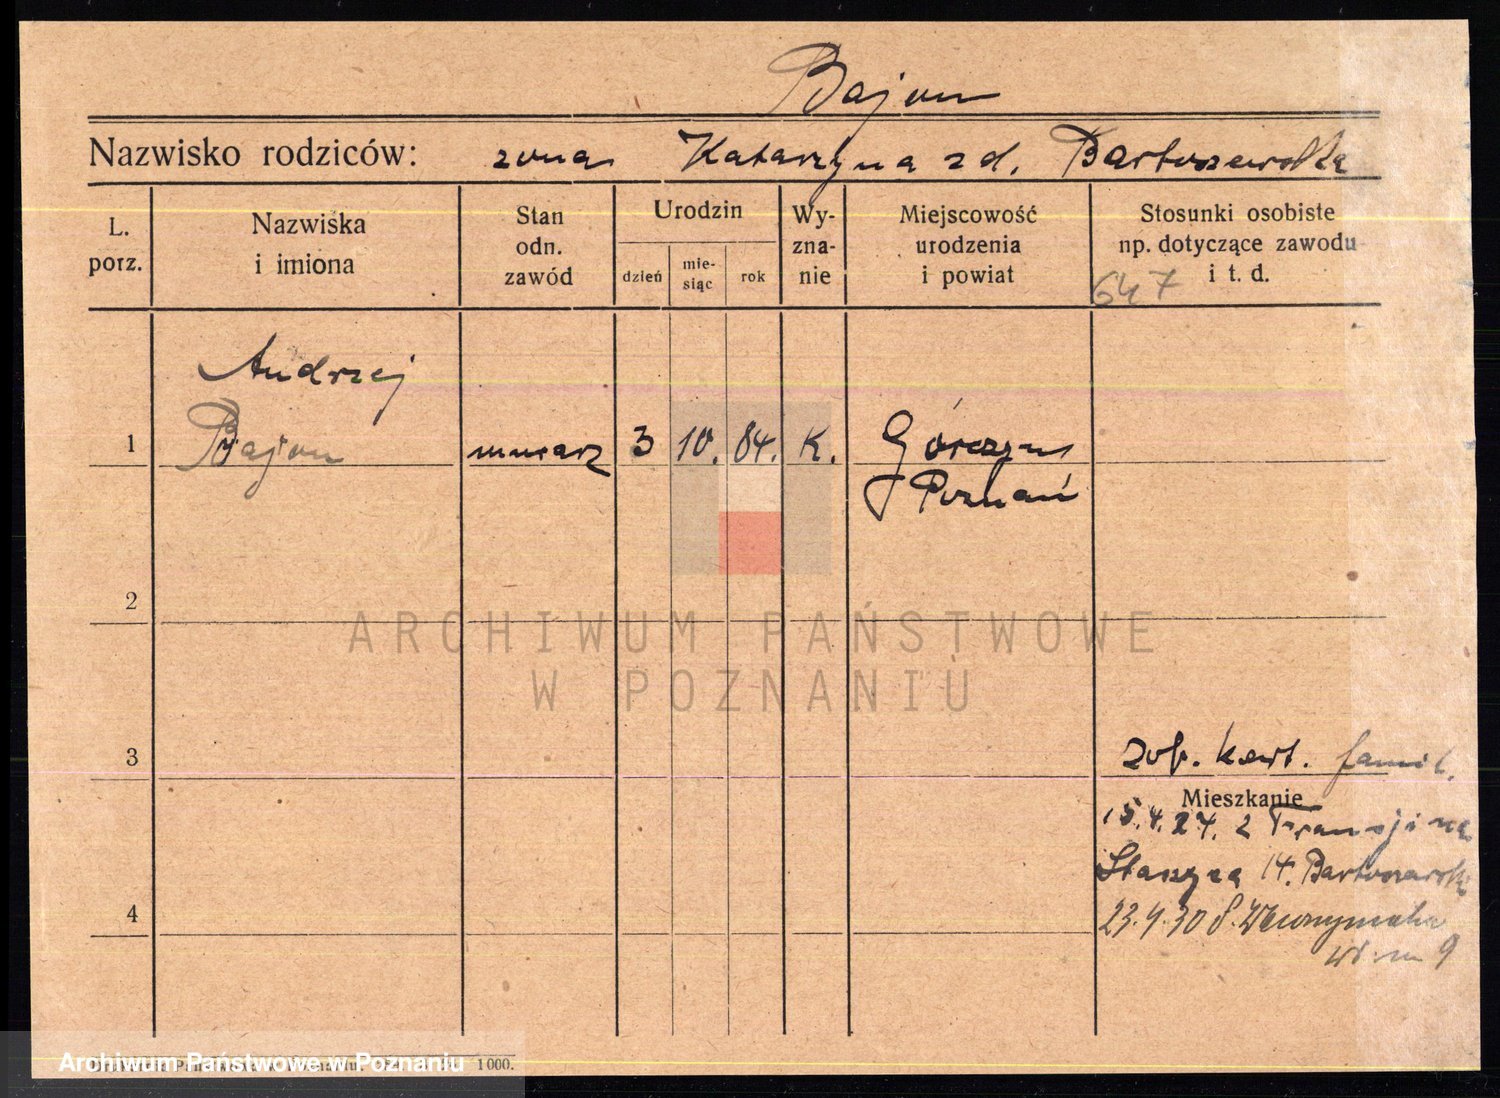 Bajon
Nazwisko rodziców: żona Katarzyna zd. Bartoszewska
L. porz.
Nazwiska i imiona
Stan odn. zawód
Urodzin
dzień
mie-siąc
rok
Wy-zna-nie
Miejscowość urodzenia i powiat
Stosunki osobiste np. dotyczące zawodu i t. d.
647
Andrzej
1 Bajon murarz 3 10. 84. K. Górczyn
Poznań
2
3
zob. kart. famil.
Mieszkanie
15.4.27. z Francji na
Staszyca 14. Bartoszewski
4
23.9.30 8.
m 9
1000.
ARCHIWUM PAŃSTWOWE
W POZNANIU
Archiwum Państwowe w Poznaniu